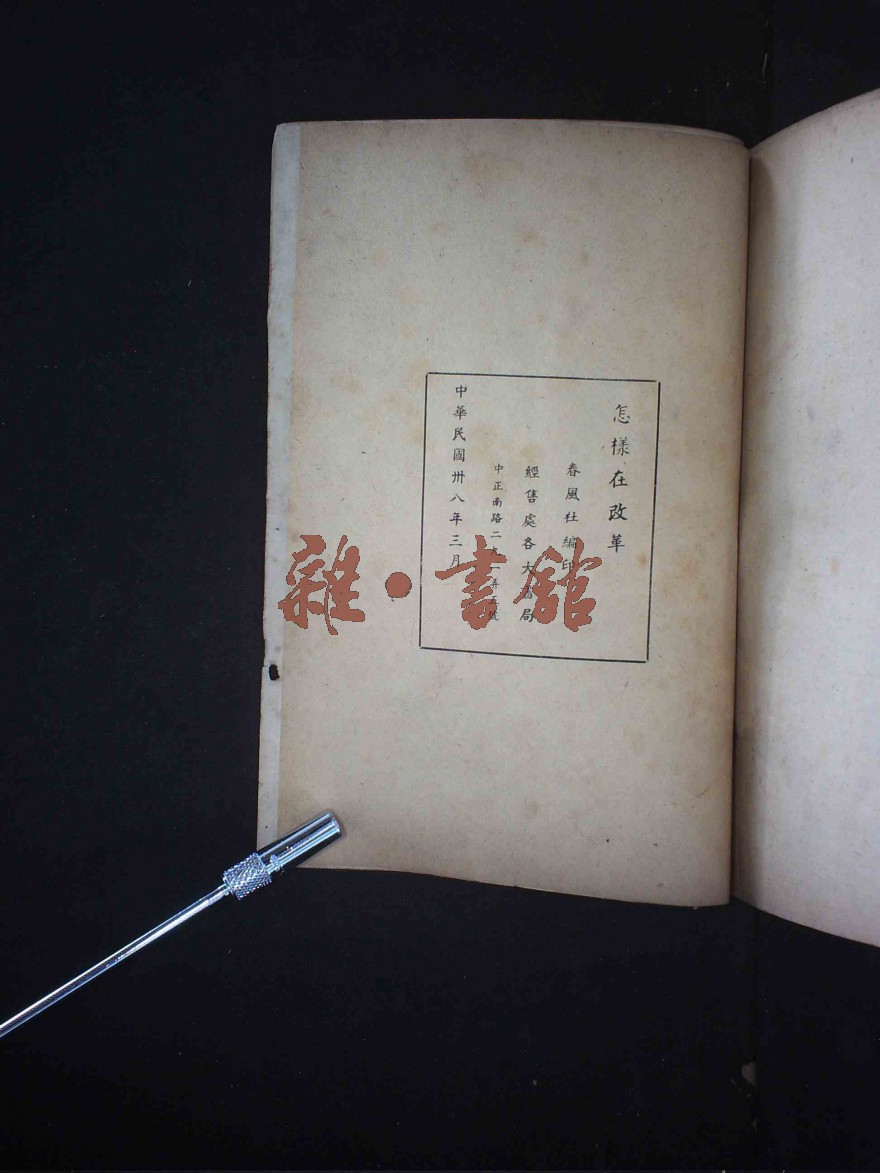 怎樣在改革
春風社編印
經售處各大書局
中正南路二九一弄五號
中華民國卅八年三月
雜·書館